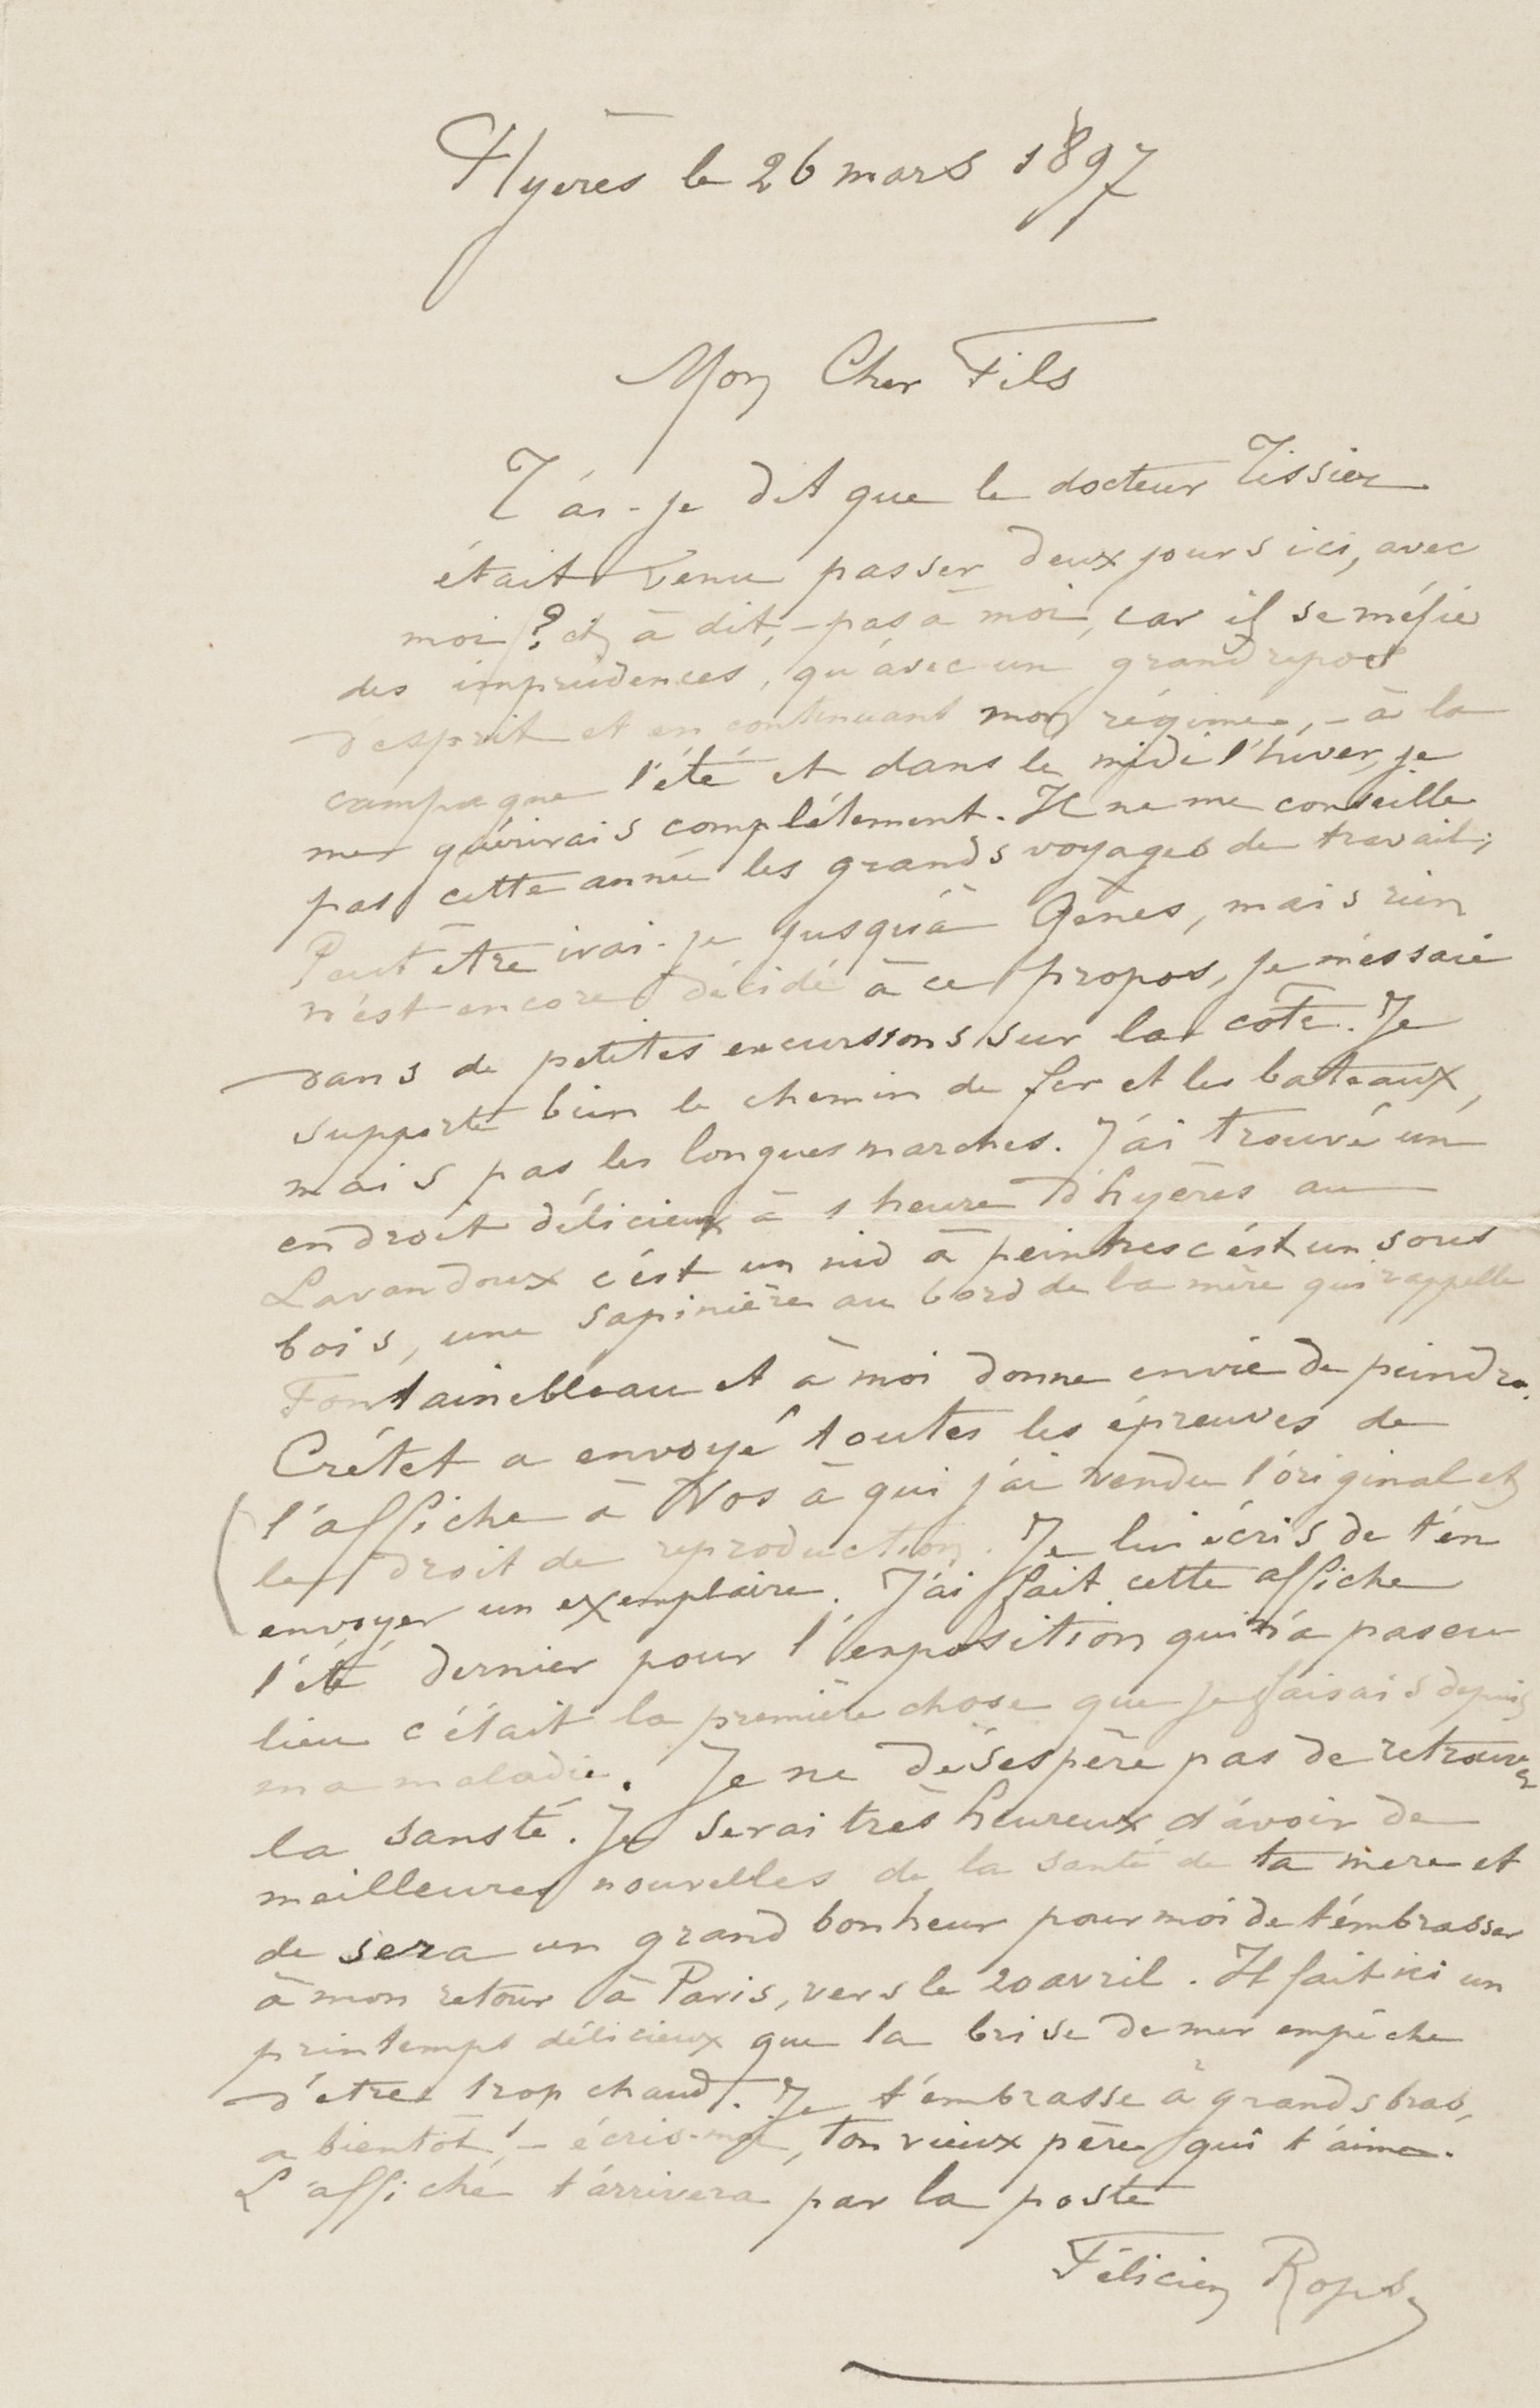 Hyères le 26 mars 1897
Mon Cher Fils
T'ai-je dit que le docteur Tissier
était venu passer deux jours ici, avec
moi ? et à dit, – pas à moi, car il se méfie
des imprudences, qu'avec un grand repos
d'esprit et en continuant mon régime, – à la
campagne l'été et dans le midi l'hiver, je
me guérirais complétement. Il ne me conseille
pas cette année les grands voyages de travail;
Peut être irai-je jusqu'à Gênes, mais rien
n'est encore décidé à ce propos, je m'essaie
dans de petites excurssons sur la côte. Je
supporte bien le chemin de fer et les bateaux,
mais pas les longues marches. J'ai trouvé un
endroit délicieux à 1 heure d'hyères au
Lavandoux c'est un nid à peintres c'est un sous
bois, une sapinière au bord de la mère qui rappelle
Fontainebleau et à moi donne envie de peindre.
Crétet a envoyé toutes les épreuves de
l'affiche à Nos à qui j'ai vendu l'original et
le droit de reproduction. Je lui écris de t'en
envoyer un exemplaire. J'ai fait cette affiche
l'été dernier pour l'exposition qui n'a pas eu
lieu c'était la première chose que je faisais depuis
ma maladie. Je ne désespère pas de retrouver
la sansté. Je serai très heureux d'avoir de
meilleures nouvelles de la santé de ta mere et
de sera un grand bonheur pour moi de t'embrasser
à mon retour à Paris, vers le 20 avril. Il fait ici un
printemps délicieux que la brise de mer empêche
d'etre trop chaud. Je t'embrasse à grands bras,
a bientôt ! – écris-moi, ton vieux père qui t'aime.
L'affiche t'arrivera par la poste
Félicien Rops